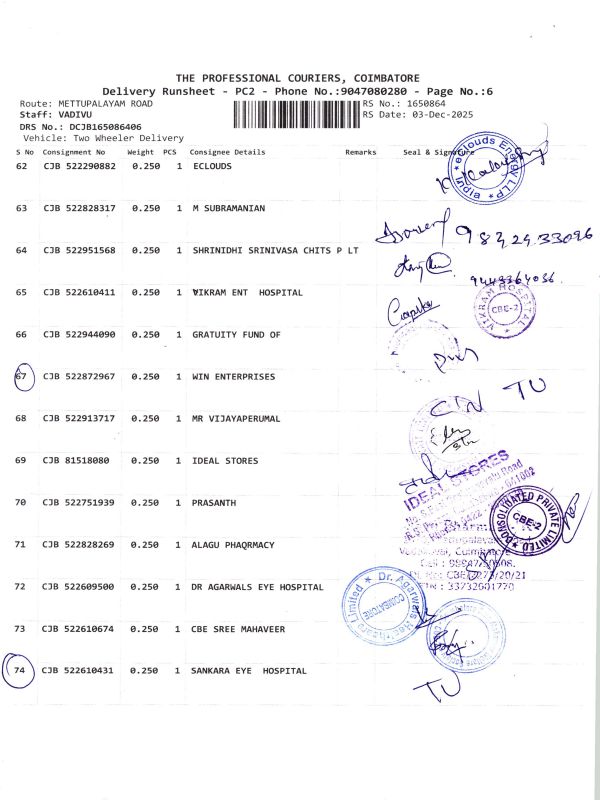 THE PROFESSIONAL COURIERS, COIMBATORE
Delivery Runsheet - PC2 - Phone No.:9047080280 - Page No.:6
Route: METTUPALAYAM ROAD RS No.: 1650864
Staff: VADIVU RS Date: 03-Dec-2025
DRS No.: DCJB165086406
Vehicle: Two Wheeler Delivery
S No Consignment No Weight PCS Consignee Details Remarks Seal & Signature
62 CJB 522290882 0.250 1 ECLOUDS
eClouds Energy LLP
63 CJB 522828317 0.250 1 M SUBRAMANIAN
64 CJB 522951568 0.250 1 SHRINIDHI SRINIVASA CHITS P LT
65 CJB 522610411 0.250 1 VIKRAM ENT HOSPITAL
VIKRAM HOSPITAL
CBE-2
66 CJB 522944090 0.250 1 GRATUITY FUND OF
67 CJB 522872967 0.250 1 WIN ENTERPRISES
68 CJB 522913717 0.250 1 MR VIJAYAPERUMAL
69 CJB 81518080 0.250 1 IDEAL STORES
IDEAL STORES
70 CJB 522751939 0.250 1 PRASANTH
CBE-2
PRIVATE LIMITED
71 CJB 522828269 0.250 1 ALAGU PHAQRMACY
72 CJB 522609500 0.250 1 DR AGARWALS EYE HOSPITAL
Dr. Agarwals Healthcare Limited
COIMBATORE
73 CJB 522610674 0.250 1 CBE SREE MAHAVEER
74 CJB 522610431 0.250 1 SANKARA EYE HOSPITAL
TU